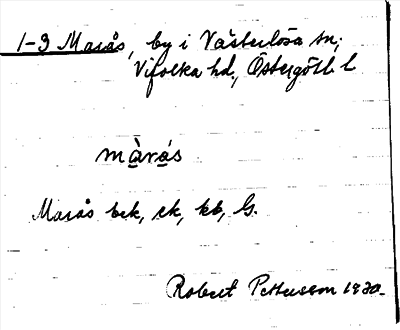 1-3 Marås, by i Västerlösa sn;
Vifolka hd., Östergötl. l
màrás
Marås bek, ek, kb, G.
Robert Pettersson 1930.